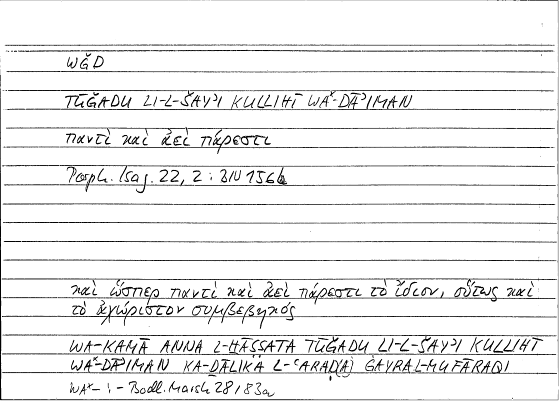 WǦD
TŪǦADU LI-L-ŠAYʾI KULLIHĪ WAˣ-DĀʾIMAN
παντὶ καὶ ἀεὶ πάρεστι
Porph. Isag. 22, 2 : BN 156b
καὶ ὥσπερ παντὶ καὶ ἀεὶ πάρεστι τὸ ἴδιον, οὕτως καὶ
τὸ ἀχώριστον συμβεβηκός
WA-KAMĀ ANNA L-ḪĀṢṢATA TŪǦADU LI-L-ŠAYʾI KULLIHĪ
WAˣ-DĀʾIMAN KA-ḎĀLIKA L-ʿARAḌ(A) ĠAYRAL-MUFĀRAQI
WAˣ - : - Bodl. Marsh 28 / 83a